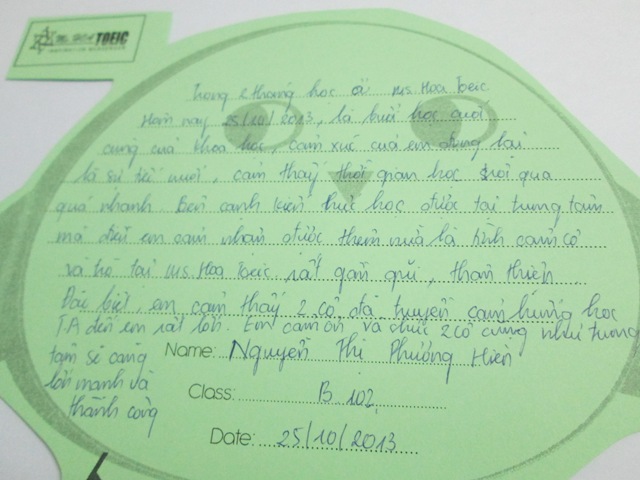 Ms. Hoa TOEIC
Trong 2 tháng học ở Ms Hoa Toeic
Hôm nay 25/10/2013, là buổi học cuối
cùng của khóa học, cảm xúc của em đọng lại
là sự tiếc nuối, cảm thấy thời gian học trôi qua
quá nhanh. Bên cạnh kiến thức học được tại trung tâm
mà điều em cảm nhận được thêm nữa là tình cảm cô
và trò tại Ms Hoa Toeic rất gần gũi, thân thiện.
Đặc biệt, em cảm thấy 2 cô đã truyền cảm hứng học
T.A đến em rất lớn. Em cảm ơn và chúc 2 cô cũng như trung
tâm sẽ càng
lớn mạnh và
thành công
Name: Nguyễn Thị Phương Hiền
Class: B 102
Date: 25/10/2013